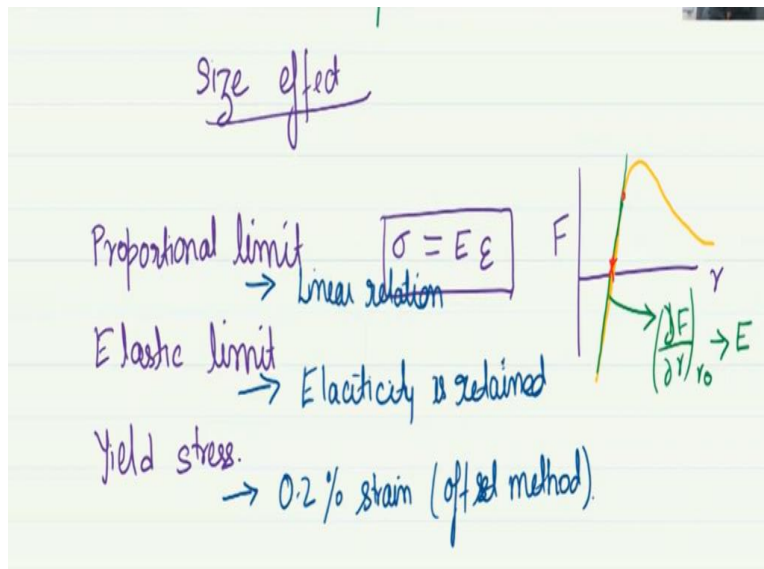 Size effect
Proportional limit
σ = E ε
→ Linear relation
Elastic limit
→ Elaciticity is retained
Yield stress.
→ 0.2% strain (offset method).
F
r
(∂F/∂r)r₀ → E